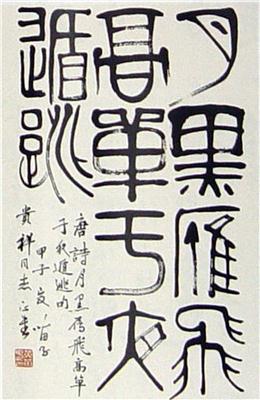 月黑雁飛
高單于夜
遁逃
唐詩月黑雁飛高單
于夜遁逃
甲子夏
貴祥同志